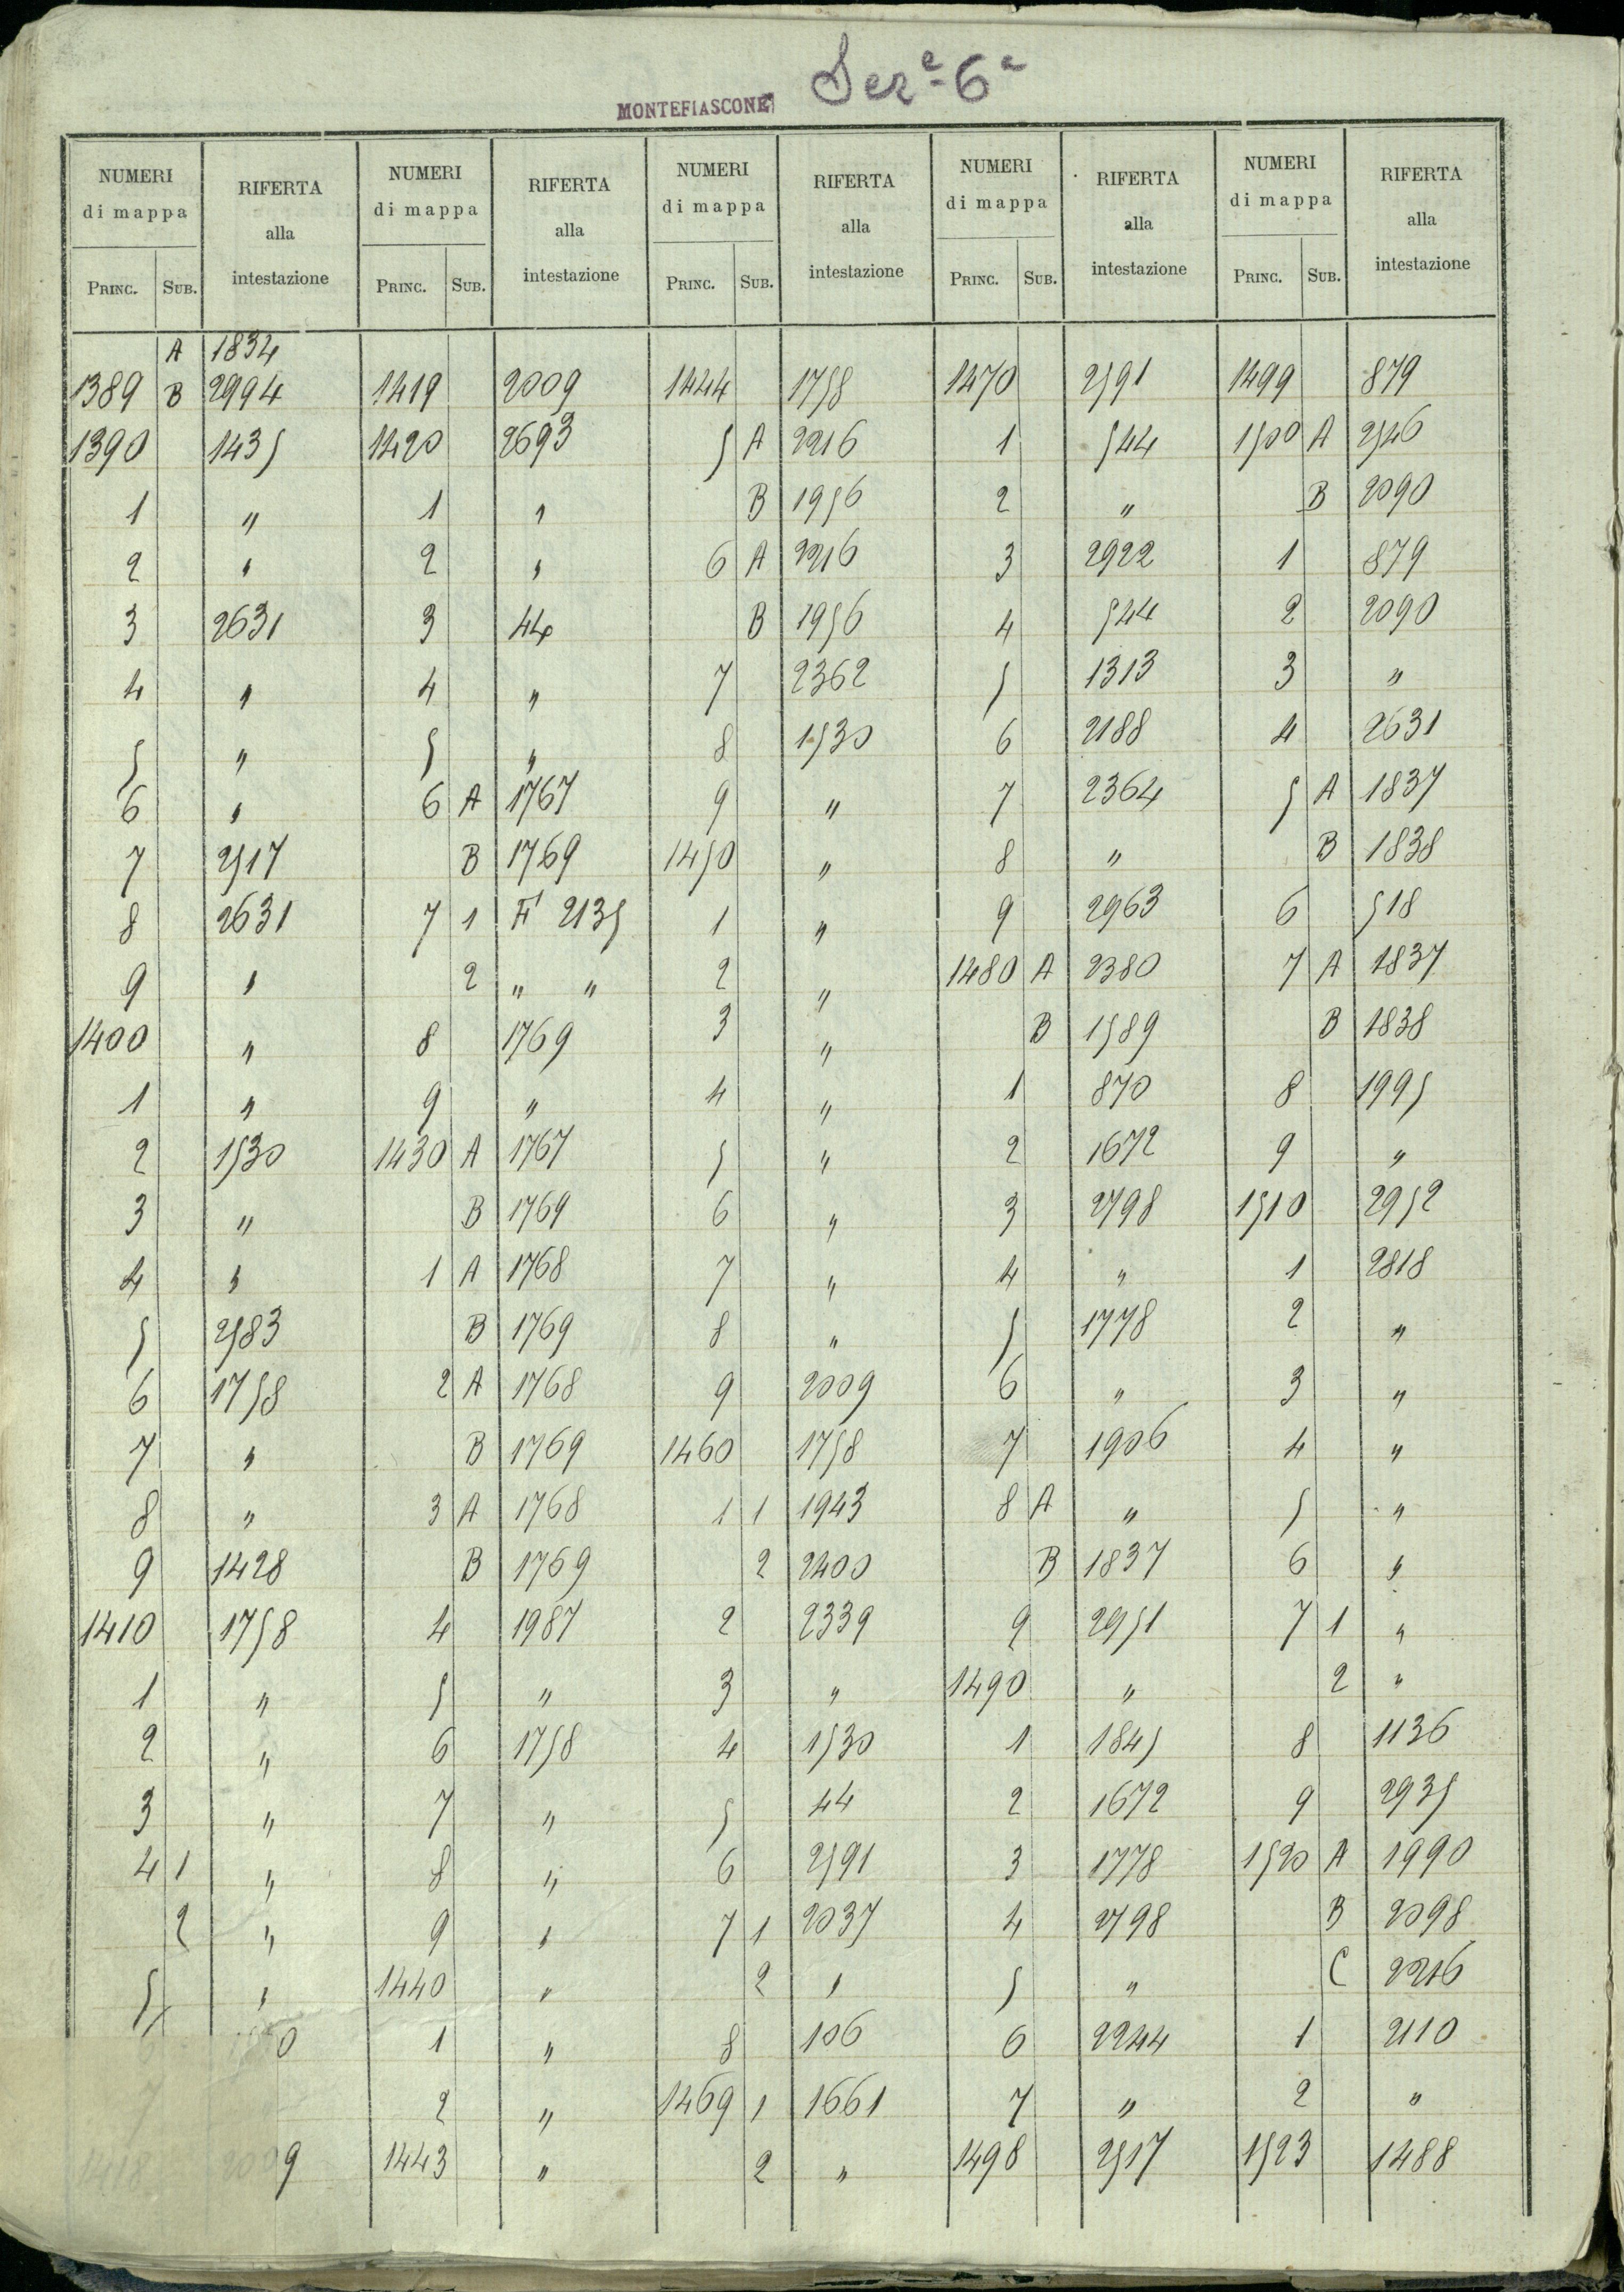 Sez.e 6a
MONTEFIASCONE
NUMERI
di mappa
PRINC. SUB.
RIFERTA
alla
intestazione
A 1834
1389 B 2994
1390 1435
1 "
2 "
3 2631
4 "
5 "
6 "
7 2517
8 2631
9 "
1400 "
1 "
2 1530
3 "
4 "
5 2583
6 1758
7 "
8 "
9 1428
1410 1758
1 "
2 "
3 "
4 1 "
2 "
5 "
6
7
1418 2009
NUMERI
di mappa
PRINC. SUB.
RIFERTA
alla
intestazione
1419 2009
1420 2693
1 "
2 "
3 44
4 "
5 "
6 A 1767
B 1769
7 1 F 2135
2 " "
8 1769
9 "
1430 A 1767
B 1769
1 A 1768
B 1769
2 A 1768
B 1769
3 A 1768
B 1769
4 1987
5 "
6 1758
7 "
8 "
9 "
1440 "
1 "
2 "
1443 "
NUMERI
di mappa
PRINC. SUB.
RIFERTA
alla
intestazione
1444 1758
5 A 2216
B 1956
6 A 2216
B 1956
7 2362
8 1530
9 "
1450 "
1 "
2 "
3 "
4 "
5 "
6 "
7 "
8 "
9 2009
1460 1758
1 1 1943
2 2400
2 2339
3 "
4 1530
5 44
6 2591
7 1 2037
2 "
8 106
1469 1 1661
2 "
NUMERI
di mappa
PRINC. SUB.
RIFERTA
alla
intestazione
1470 2591
1 544
2 "
3 2922
4 544
5 1313
6 2188
7 2364
8 "
9 2963
1480 A 2380
B 1589
1 870
2 1672
3 2798
4 "
5 1778
6 "
7 1906
8 A "
B 1837
9 2951
1490 "
1 1845
2 1672
3 1778
4 2798
5 "
6 2244
7 "
1498 2517
NUMERI
di mappa
PRINC. SUB.
RIFERTA
alla
intestazione
1499 879
1500 A 2546
B 2090
1 879
2 2090
3 "
4 2631
5 A 1837
B 1838
6 518
7 A 1837
B 1838
8 1995
9 "
1510 2952
1 2818
2 "
3 "
4 "
5 "
6 "
7 1 "
2 "
8 1136
9 2935
1520 A 1990
B 2098
C 2216
1 2110
2 "
1523 1488